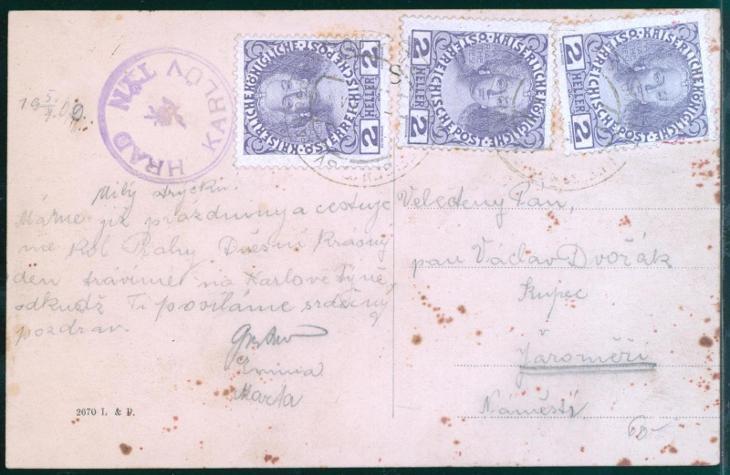 HRAD KARLŮV TÝN
2 HELLER 2
KAISERLICHE KÖNIGLICHE ÖSTERREICHISCHE POST
2 HELLER 2
KAISERLICHE KÖNIGLICHE ÖSTERREICHISCHE POST
2 HELLER 2
KAISERLICHE KÖNIGLICHE ÖSTERREICHISCHE POST
Milý strýčku.
Máme již prázdniny a cestuje
me kol Prahy Dnešní krásný
den trávíme na Karlově Týně,
odkudž Ti posíláme srdečný
pozdrav.
Emma
Marta
2670 L. & P.
Velectěný Pán,
pan Václav Dvořák
kupec
v
Jaroměři
Náměstí
60-